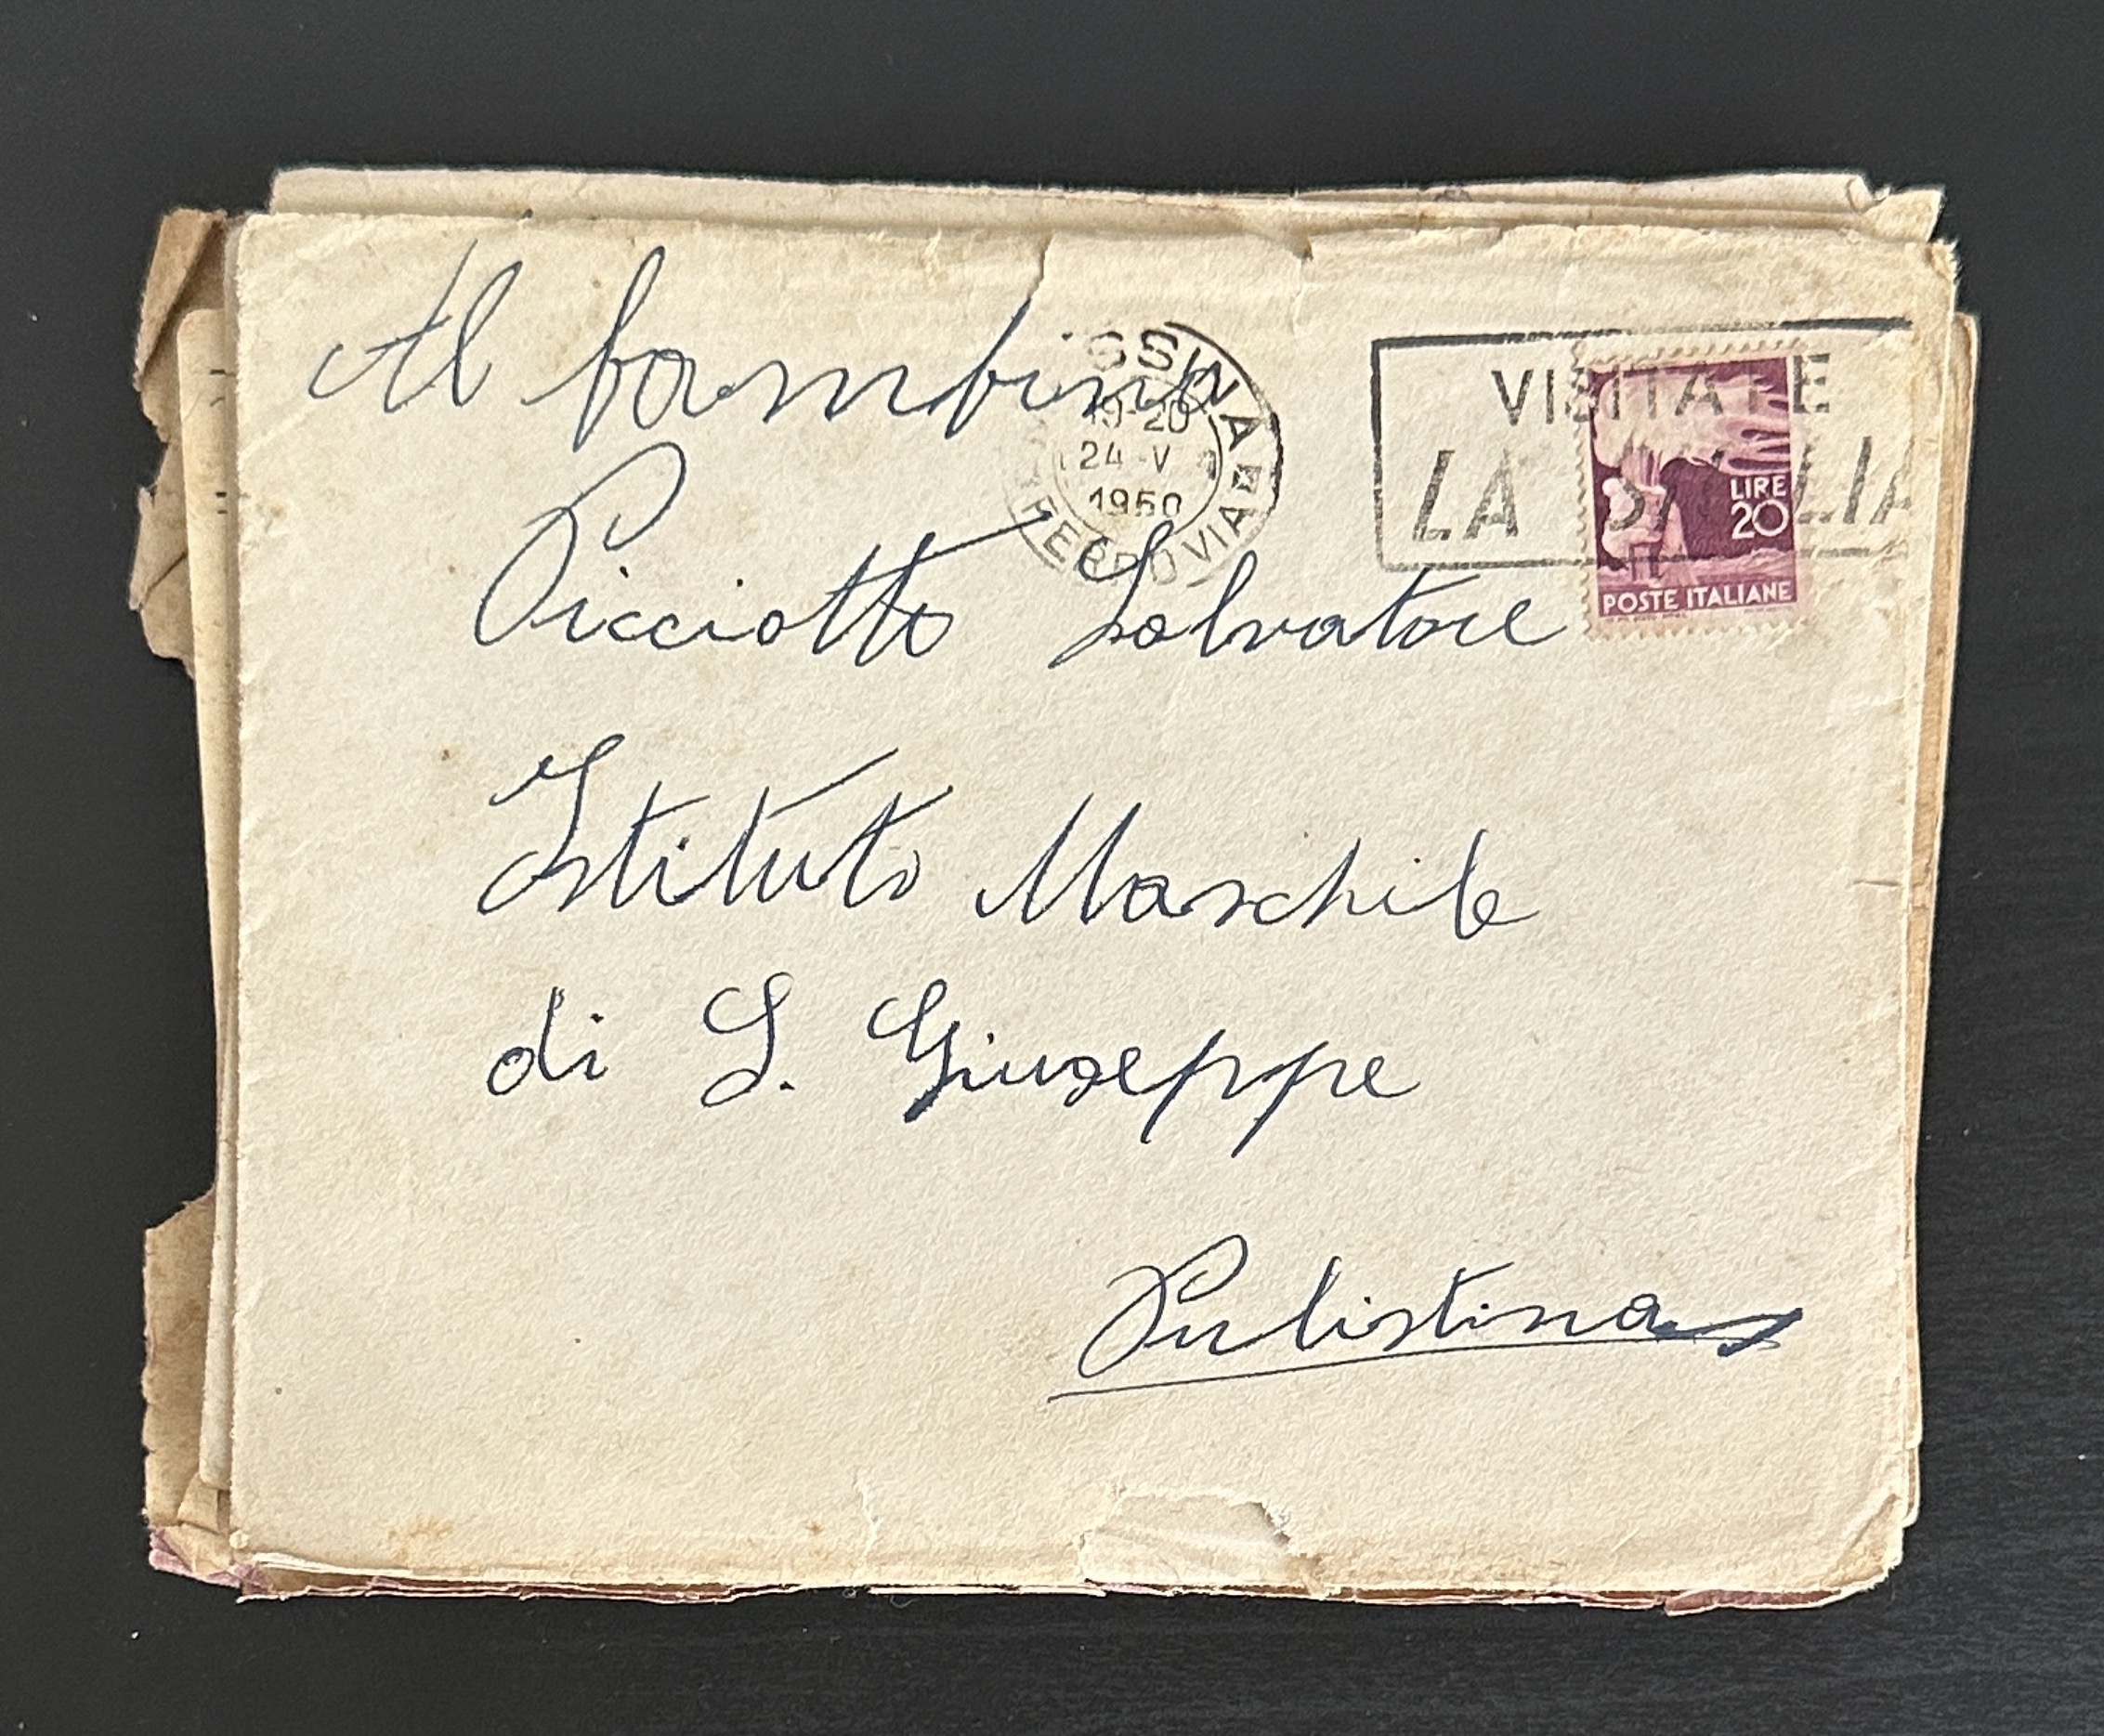 Al bambino
Picciotto Salvatore
Istituto Maschile
di S. Giuseppe
Pulistina
SSINA
19-20
24-V
1950
FERROVIA
VISITATE
LA SICILIA
LIRE
20
POSTE ITALIANE